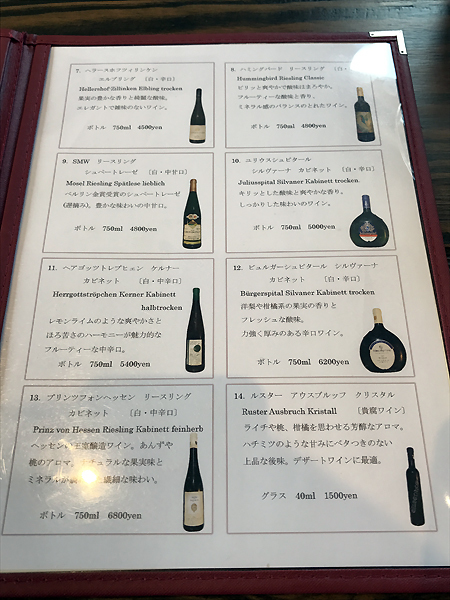 7. ヘラースホフツィリンケン
エルプリング 〔白・辛口〕
Hellershof-Zillinken Elbling trocken
果実の豊かな香りと綺麗な酸味。
エレガントで雑味のないワイン。
ボトル 750ml 4500yen
8. ハミングバード リースリング 〔白・
Hummingbird Riesling Classic
ピリッと爽やかで酸味はまろやか。
フルーティーな酸味と香り。
ミネラル感のバランスのとれたワイン。
ボトル 750ml 4800yen
9. SMW リースリング
シュペートレーゼ 〔白・中甘口〕
Mosel Riesling Spätlese lieblich
ベルリン金賞受賞のシュペートレーゼ
(遅摘み)。豊かな味わいの中甘口。
ボトル 750ml 4800yen
10. ユリウスシュピタール
シルヴァーナ カビネット 〔白・辛口〕
Juliusspital Silvaner Kabinett trocken
キリッとした酸味と爽やかな香り。
しっかりした味わいのワイン。
ボトル 750ml 5000yen
11. ヘアゴッツトレプヒェン ケルナー
カビネット 〔白・中辛口〕
Herrgottströpchen Kerner Kabinett
halbtrocken
レモンライムのような爽やかさと
ほろ苦さのハーモニーが魅力的な
フルーティーな中辛口。
ボトル 750ml 5400yen
12. ビュルガーシュピタール シルヴァーナ
カビネット 〔白・辛口〕
Bürgerspital Silvaner Kabinett trocken
洋梨や柑橘系の果実の香りと
フレッシュな酸味。
力強く厚みのある辛口ワイン。
ボトル 750ml 6200yen
13. プリンツフォンヘッセン リースリング
カビネット 〔白・中辛口〕
Prinz von Hessen Riesling Kabinett feinherb
ヘッセンの王室醸造ワイン。あんずや
桃のアロマ。ナチュラルな果実味と
ミネラルが 繊細な味わい。
ボトル 750ml 6800yen
14. ルスター アウスブルッフ クリスタル
Ruster Ausbruch Kristall 〔貴腐ワイン〕
ライチや桃、柑橘を思わせる芳醇なアロマ。
ハチミツのような甘みにベタつきのない
上品な後味。デザートワインに最適。
グラス 40ml 1500yen